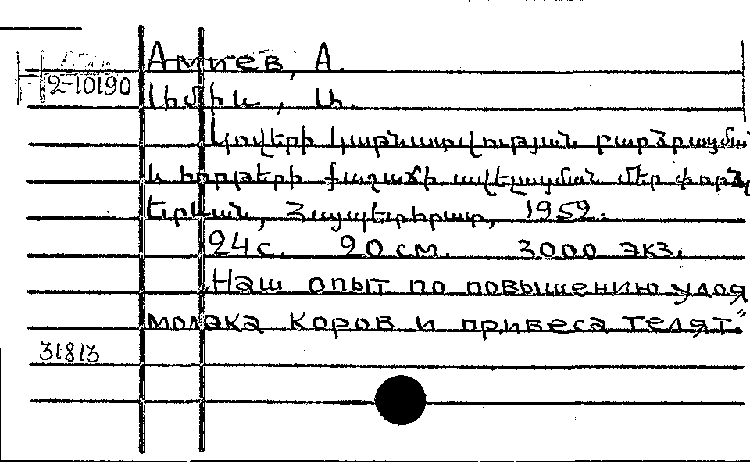 Амиев, А.
2-10190
Ամիև, Ա.
Կովերի կաթնատվության բարձրացման
և հորթերի քաշաճի ավելացման մեր փորձը
Երևան, Հայպետհրատ, 1952.
24 с. 20 см. 3000 экз.
Наш опыт по повышению удоя
молока коров и привеса телят."
31813